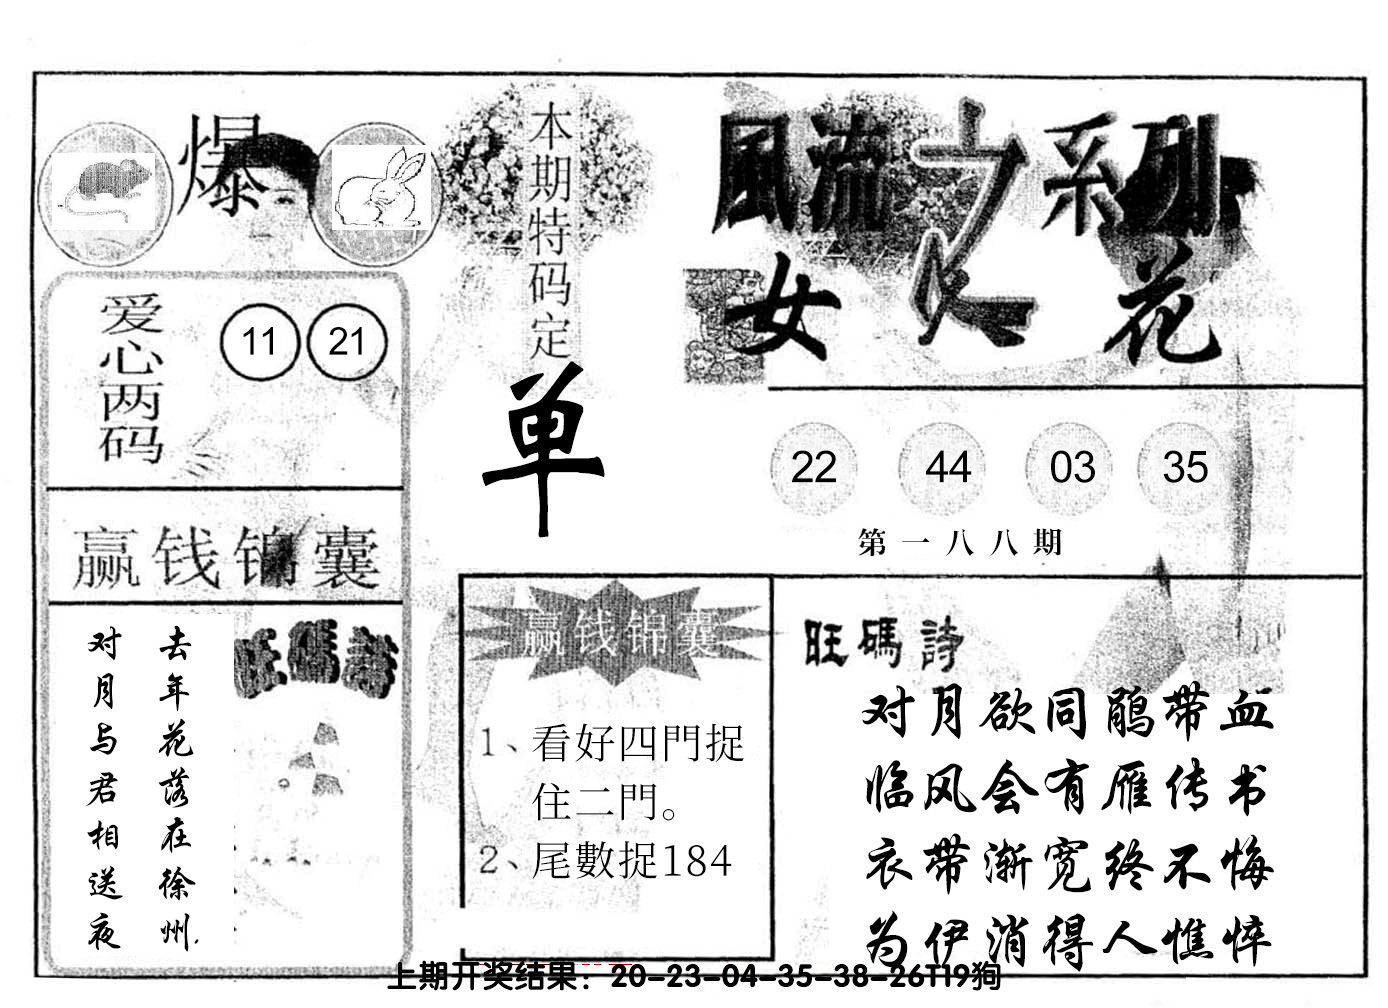 爆
本期特码定
单
風流之系列
女人花
爱心两码
11 21
22 44 03 35
第一八八期
赢钱锦囊
去年花落在徐州,
对月与君相送夜
旺碼詩
赢钱锦囊
1、看好四門捉
住二門。
2、尾數捉184
旺碼詩
对月欲同鹃带血
临风会有雁传书
衣带渐宽终不悔
为伊消得人憔悴
上期开奖结果：20-23-04-35-38-26T19狗